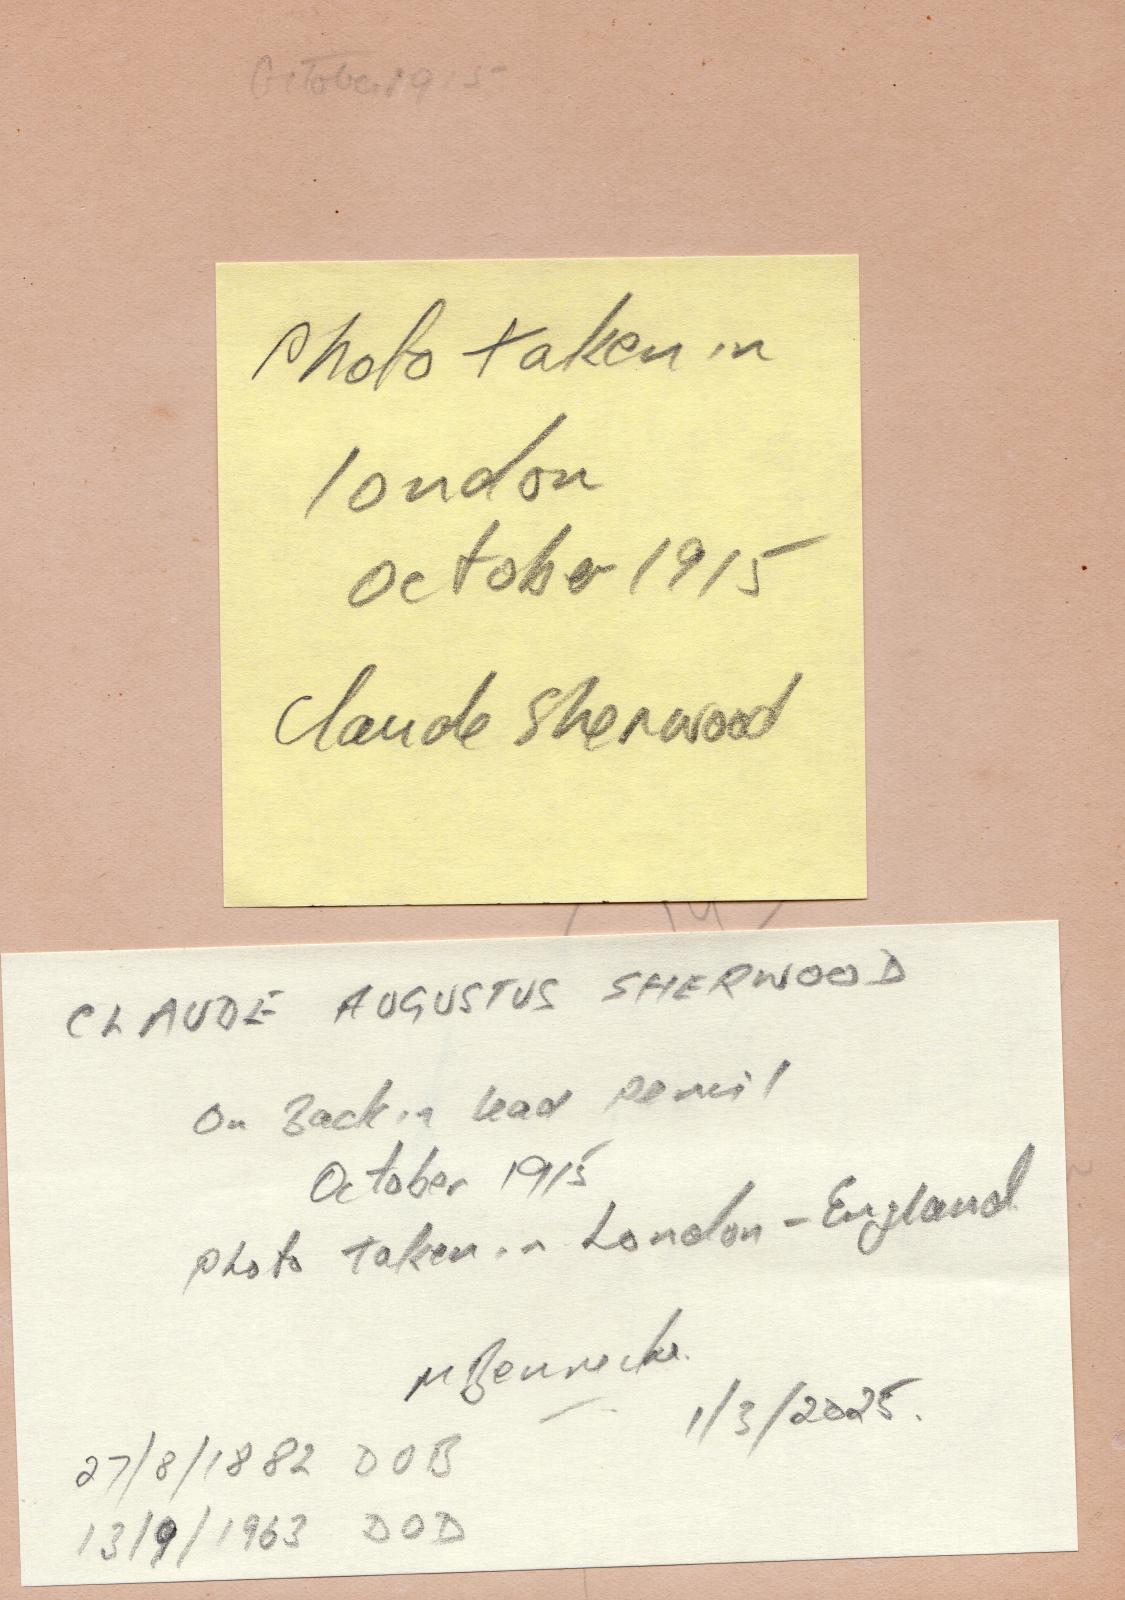 October 1915
Photo taken in
london
october 1915
Claude Sherwood
CLAUDE AUGUSTUS SHERWOOD
On Back in lead pencil
October 1915
Photo taken in London - England
MBennecke.
1/3/2025.
27/8/1882 DOB
13/9/1963 DOD